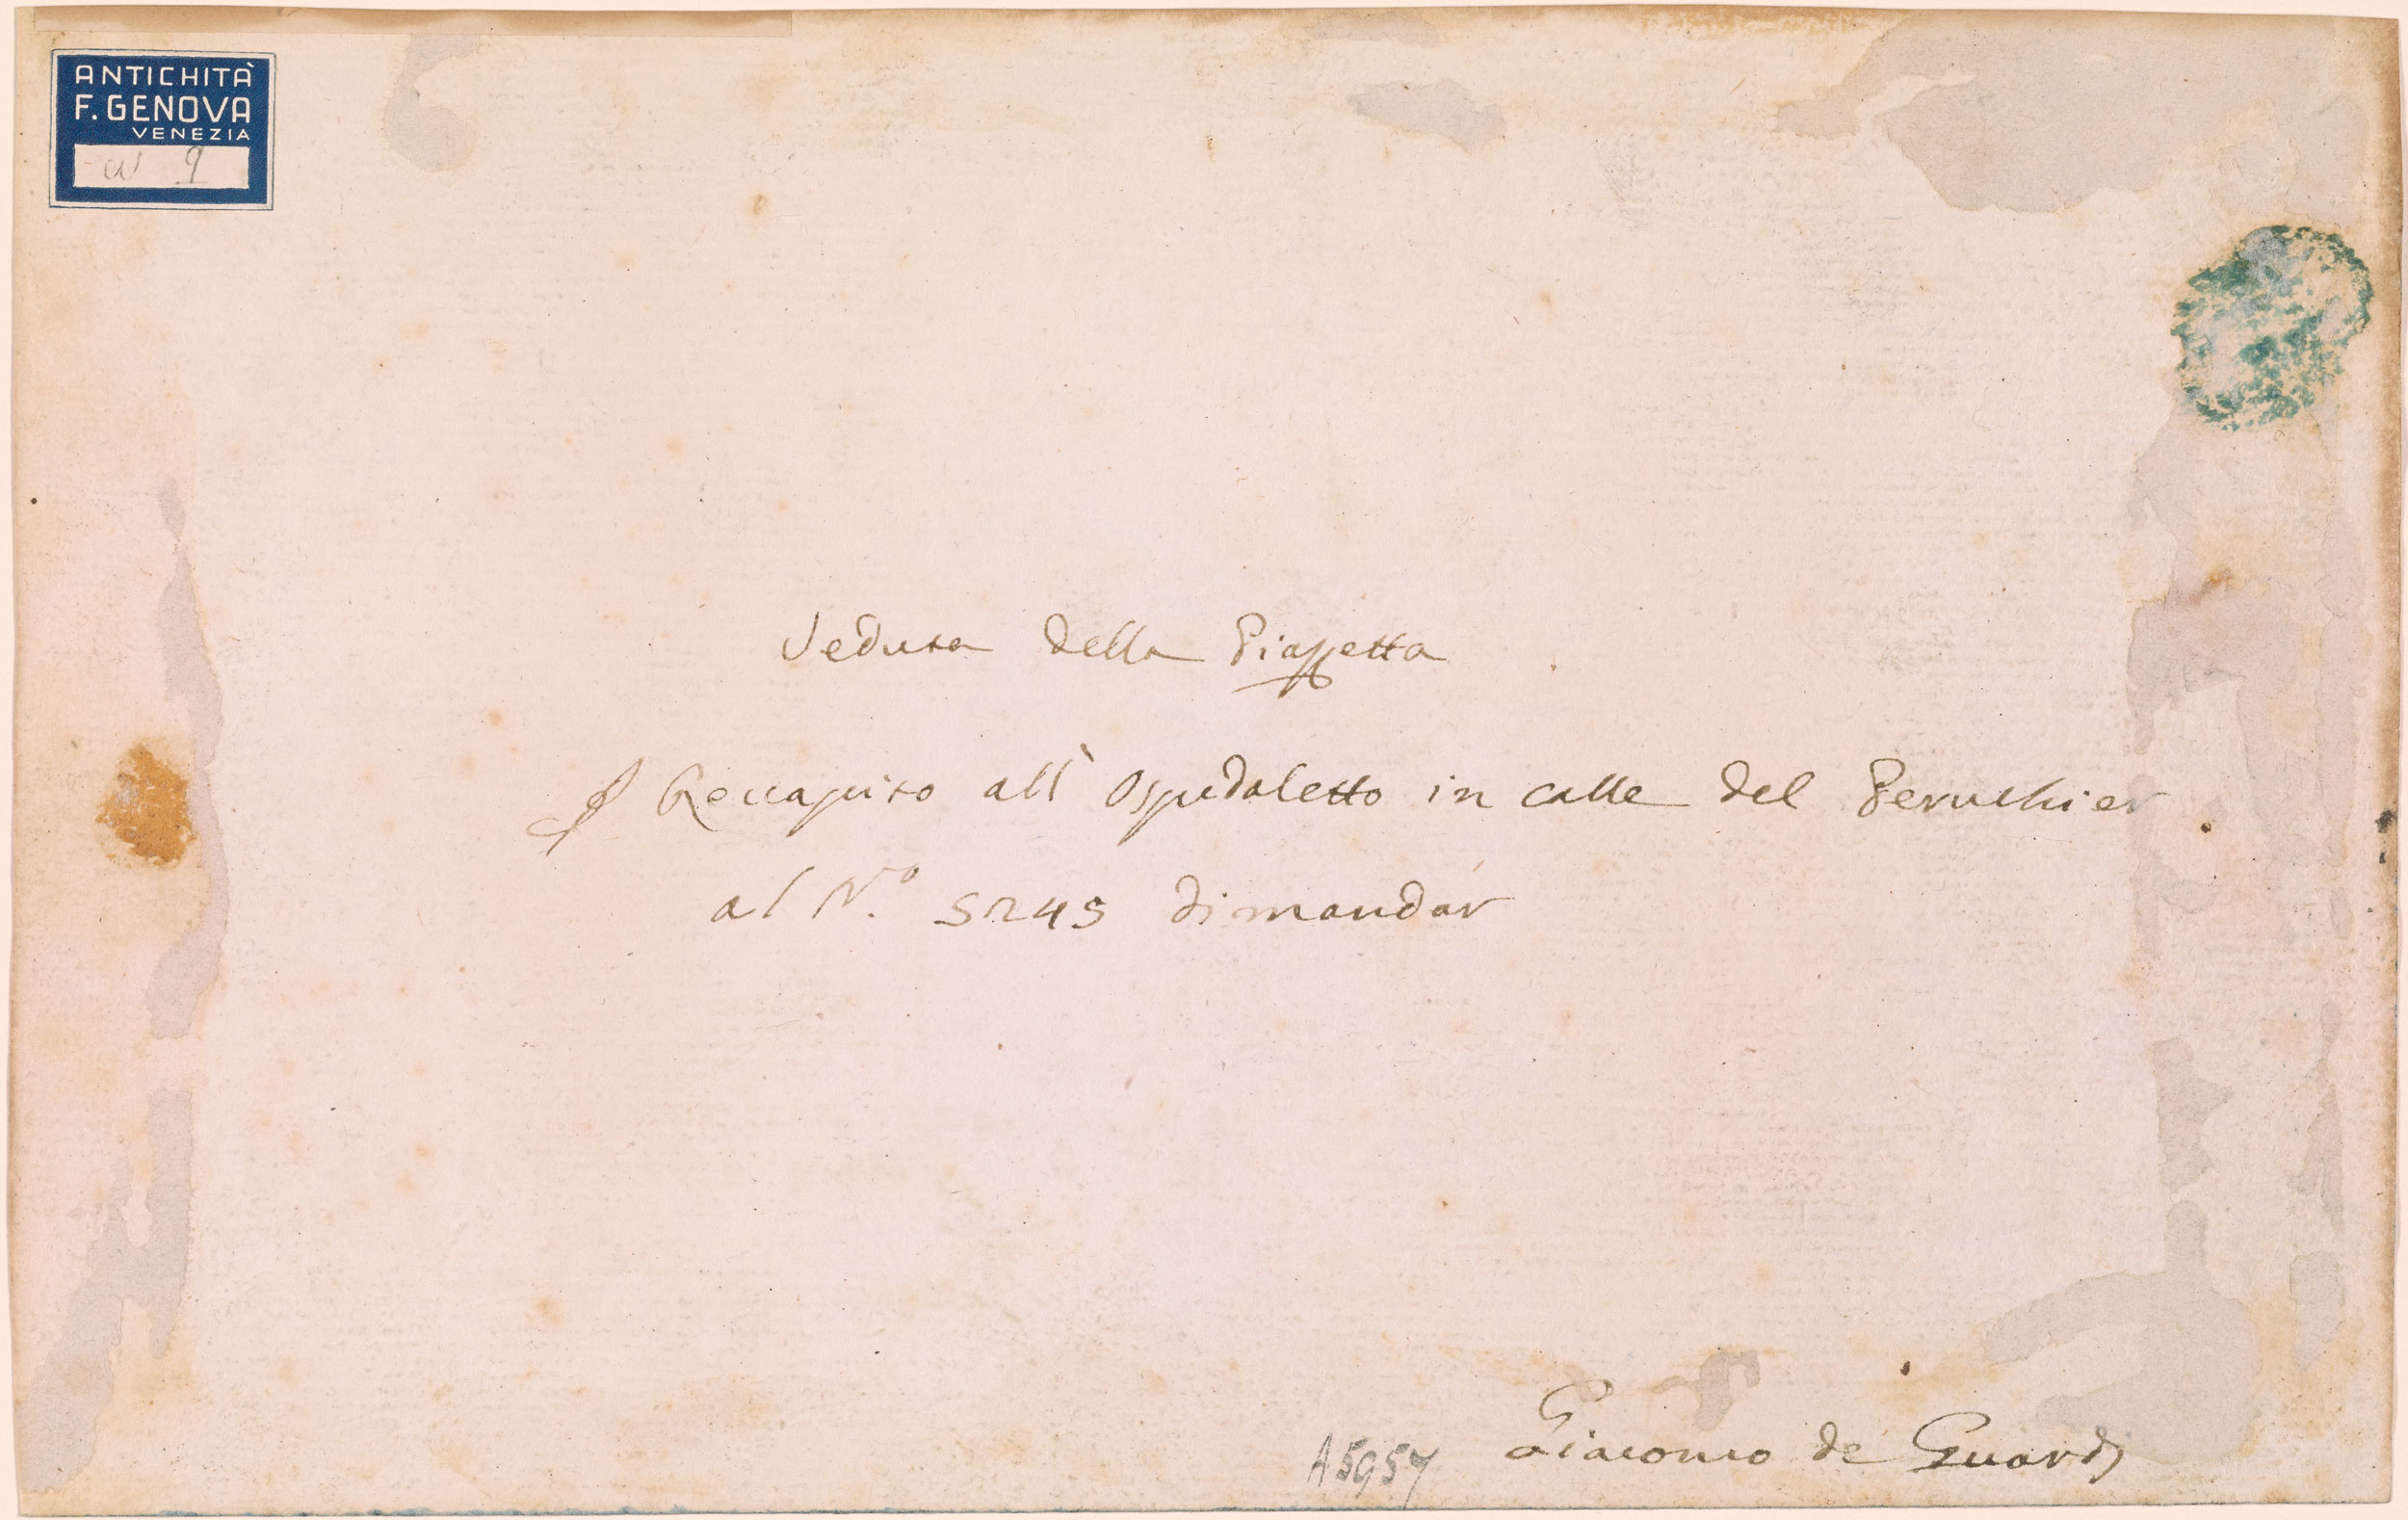 ANTICHITÀ
F. GENOVA
VENEZIA
9
Veduta della Piazzetta
Reccapito all' Ospedaletto in calle del Peruchier
al N.o 5245 dimandar
Giacomo de Guardi
A5957